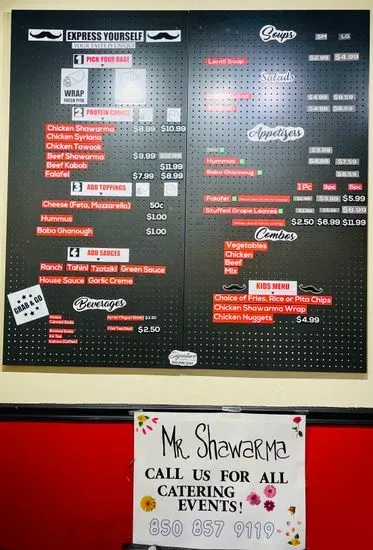 EXPRESS YOURSELF
YOUR TASTE IS UNIQUE
1 PICK YOUR BASE
WRAP
FRESH PITA
2 PROTEIN CHOICE
Chicken Shawarma $8.99 $10.99
Chicken Syriana
Chicken Tawook
Beef Shawarma $9.99 $12.99
Beef Kabob $11.99
Falafel $7.99 $8.99
3 ADD TOPPINGS
Cheese (Feta, Mozzarello) 50¢
Hummus $1.00
Baba Ghanough $1.00
4 ADD SAUCES
Ranch Tahini Tzatziki Green Sauce
House Sauce Garlic Creme
GRAB & GO
Beverages
$3.50
$2.50
Soups SM LG
Lentil Soup $2.99 $4.99
Salads
Appetizers
$3.99
Hummus $4.99 $7.59
Baba Ghanoush $8.59
1Pc 3pc 5pc
Falafel $5.99
Stuffed Grape Leaves $8.99
$2.50 $6.99 $11.99
Combos
Vegetables
Chicken
Beef
Mix
KIDS MENU
Choice of Fries, Rice or Pita Chips
Chicken Shawarma Wrap
Chicken Nuggets $4.99
Signature
Mr. Shawarma
CALL US FOR ALL
CATERING
EVENTS!
850 857 9119